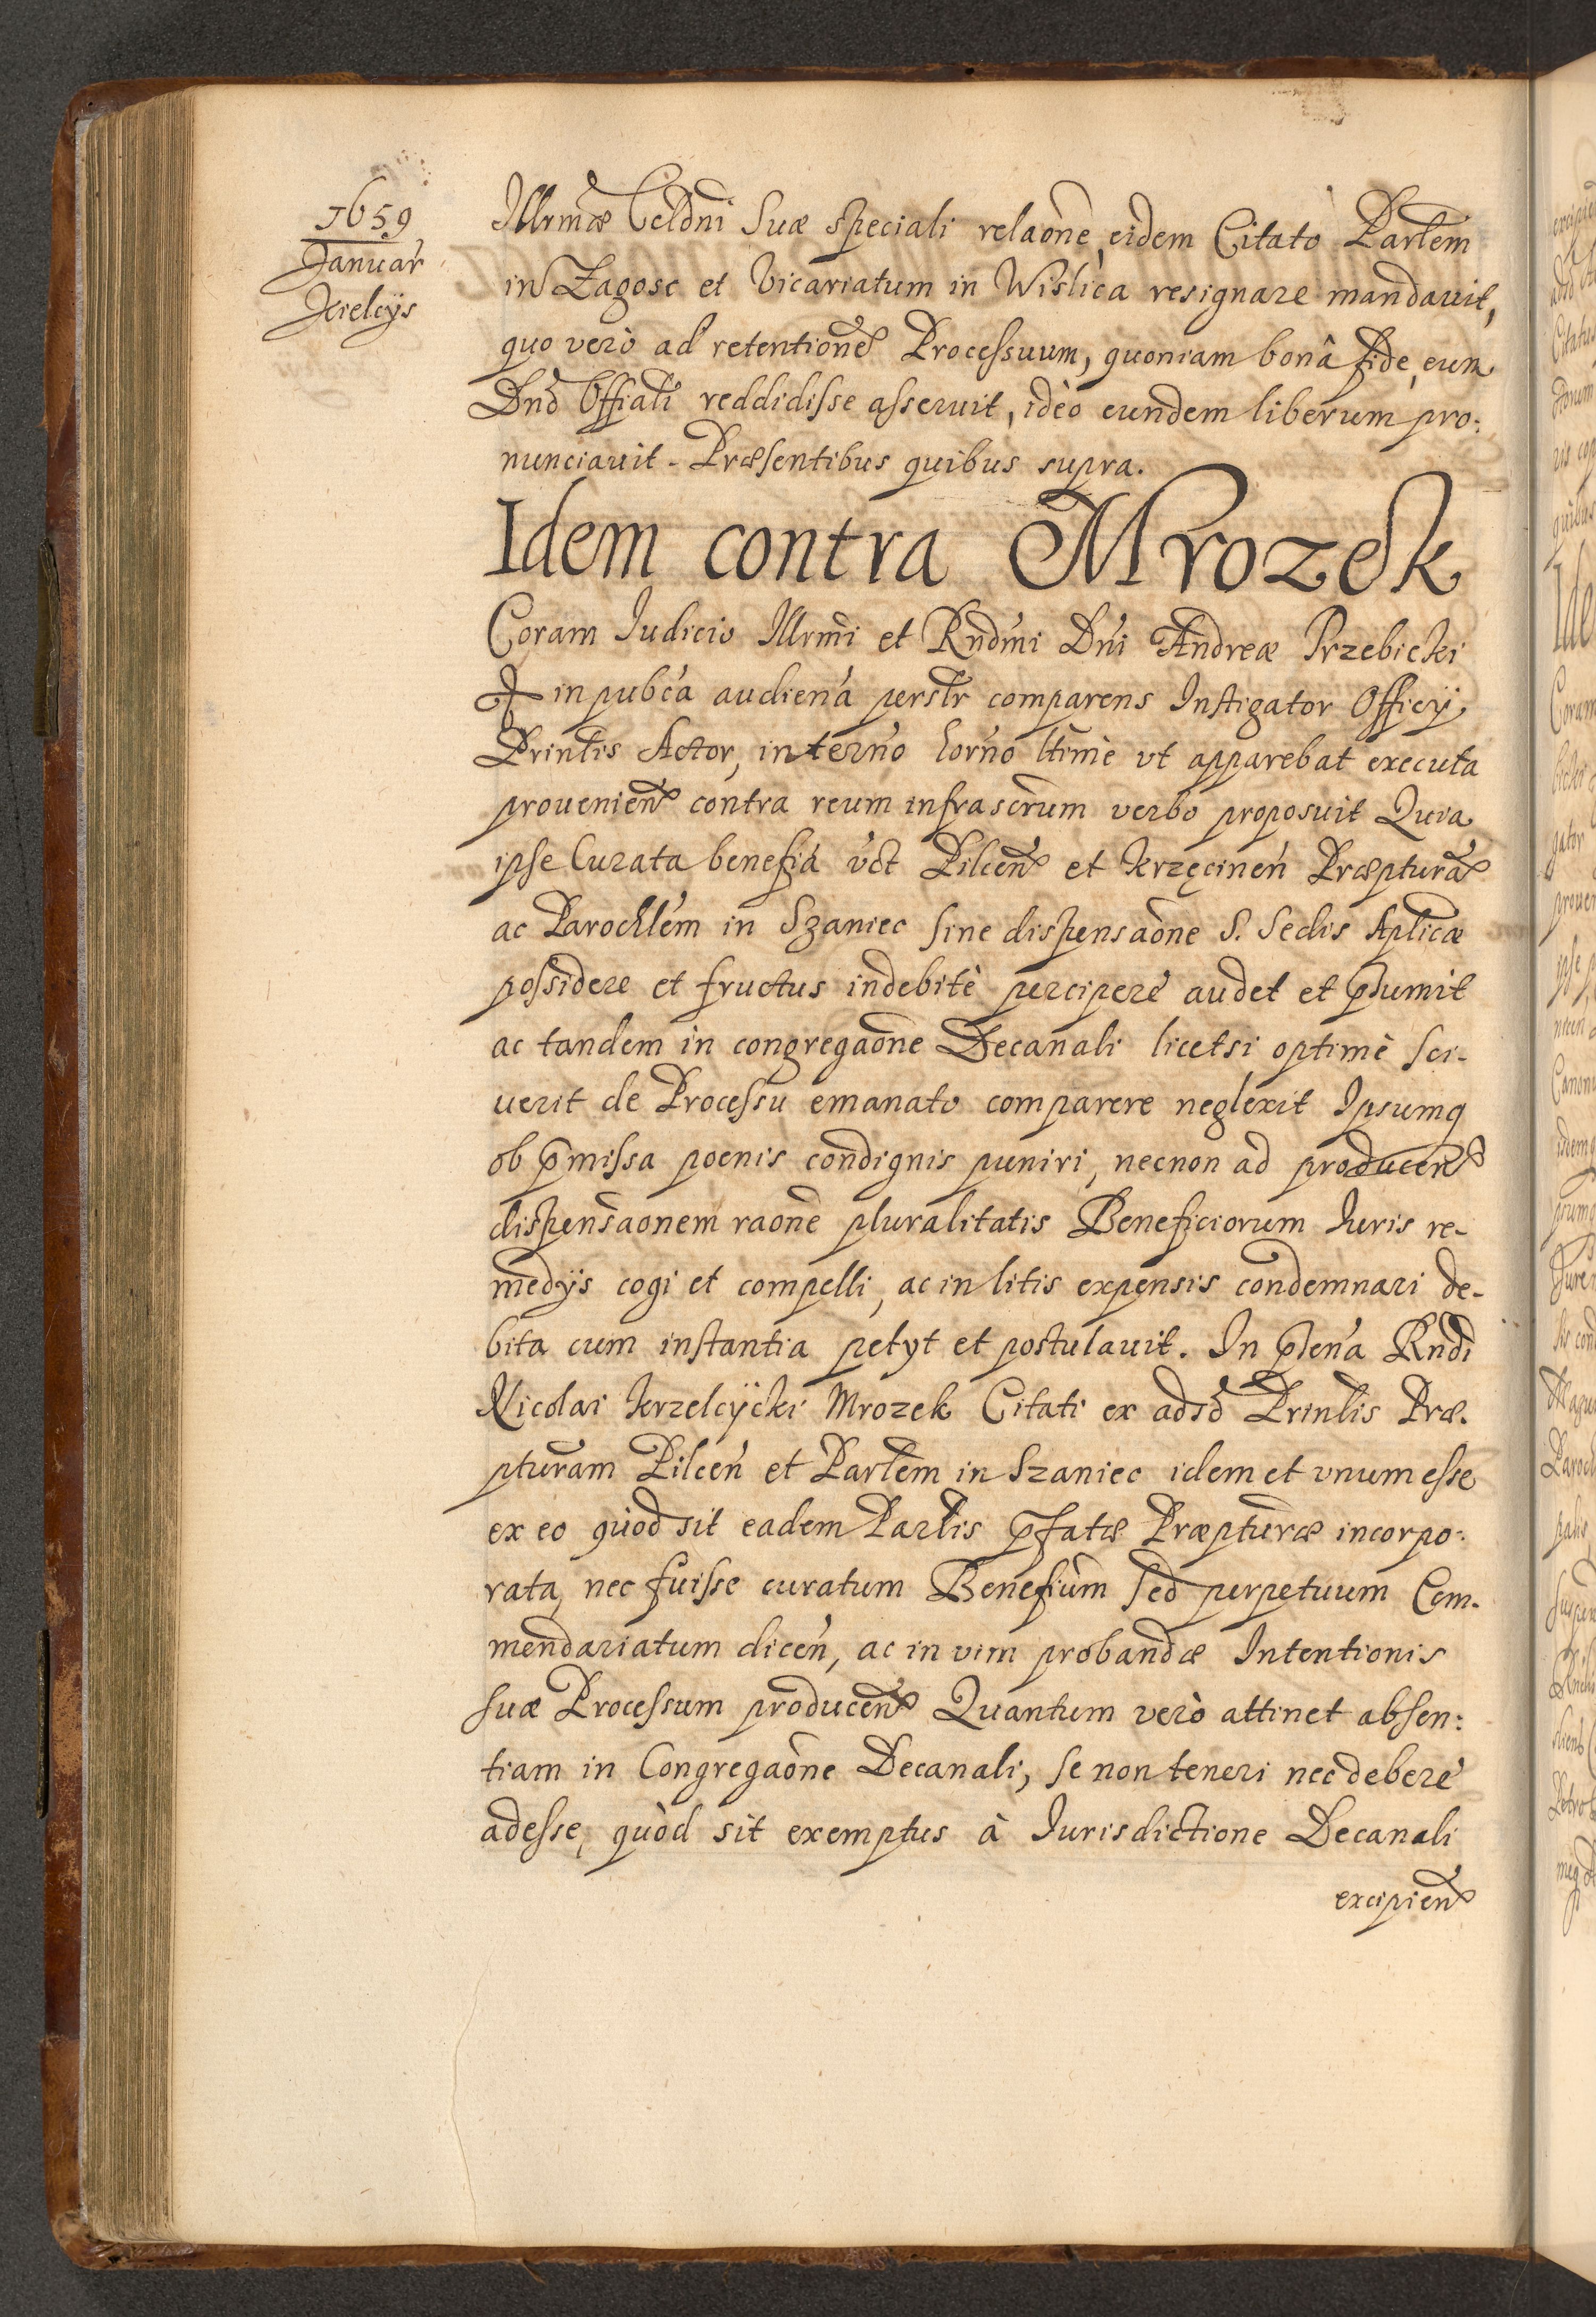 1659
Januar
Kielcÿs
Illrmæ Celdni Suæ speciali relaone, eidem Citato Parlem
in Zagosc et Vicariatum in Wislica resignare mandauit,
quo verò ad retentione Processuum, quoniam bonâ fide, eum
Dno Offiali reddidisse asseruit, ideò eundem liberum pro:
nunciauit. Præsentibus quibus supra.
Idem contra Mrozek
Coram Iudicio Illrmi et Rndmi Dni Andreæ Trzebicki
in pubca audiena perslr comparens Instigator Officÿ
Prinlis Actor, in terno Corno ltime vt apparebat executa
prouenien contra reum infrascrum verbo proposuit Quia
ipse Curata benefia vct Pilcen et Krzęcinen Præptura
ac Parochlem in Szaniec sine dispensaone S. Sedis Aplicæ
possidere et fructus indebitè percipere audet et psumit
ac tandem in congregaone Decanali licetsi optimè sci-
uerit de Processu emanato comparere neglexit Ipsumq
ob pmissa poenis condignis puniri, necnon ad producen
dispensaonem raone pluralitatis Beneficiorum Iuris re-
medÿs cogi et compelli, ac in litis expensis condemnari de-
bita cum instantia petyt et postulauit. In psena Rndi
Nicolai Krzelcÿcki Mrozek Citati ex adso Prinlis Præ.
pturam Pilcen et Parlem in Szaniec idem et vnum esse
ex eo quod sit eadem Parlis pfatæ Præpturæ incorpo:
rata, nec fuisse curatum Benefium sed perpetuum Com.
mendariatum dicen, ac in vim probandæ Intentionis
suæ Processum producen Quantum verò attinet absen:
tiam in Congregaone Decanali, se non teneri nec debere
adesse, quòd sit exemptus à Iurisdictione Decanali
excipien